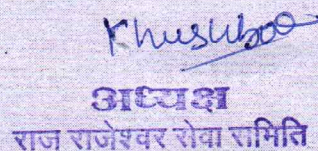 Khusuboo
अध्यक्ष
राज राजेश्वर सेवा समिति